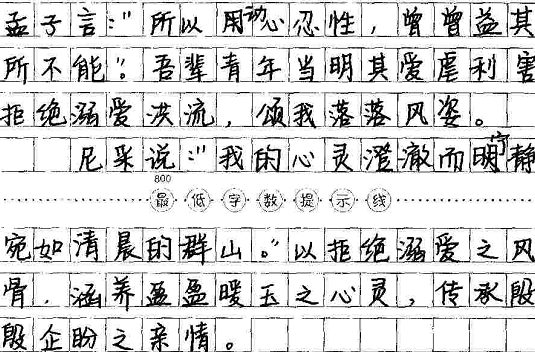 孟子言:"所以用动心忍性,曾曾益其
所不能"。吾辈青年当明其爱虐利害
拒绝溺爱洪流,颂我落落风姿。
尼采说:"我的心灵澄澈而明宁静
800
最低字数提示线
宛如清晨的群山。"以拒绝溺爱之风
骨,涵养盈盈暖玉之心灵,传承殷
殷企盼之亲情。